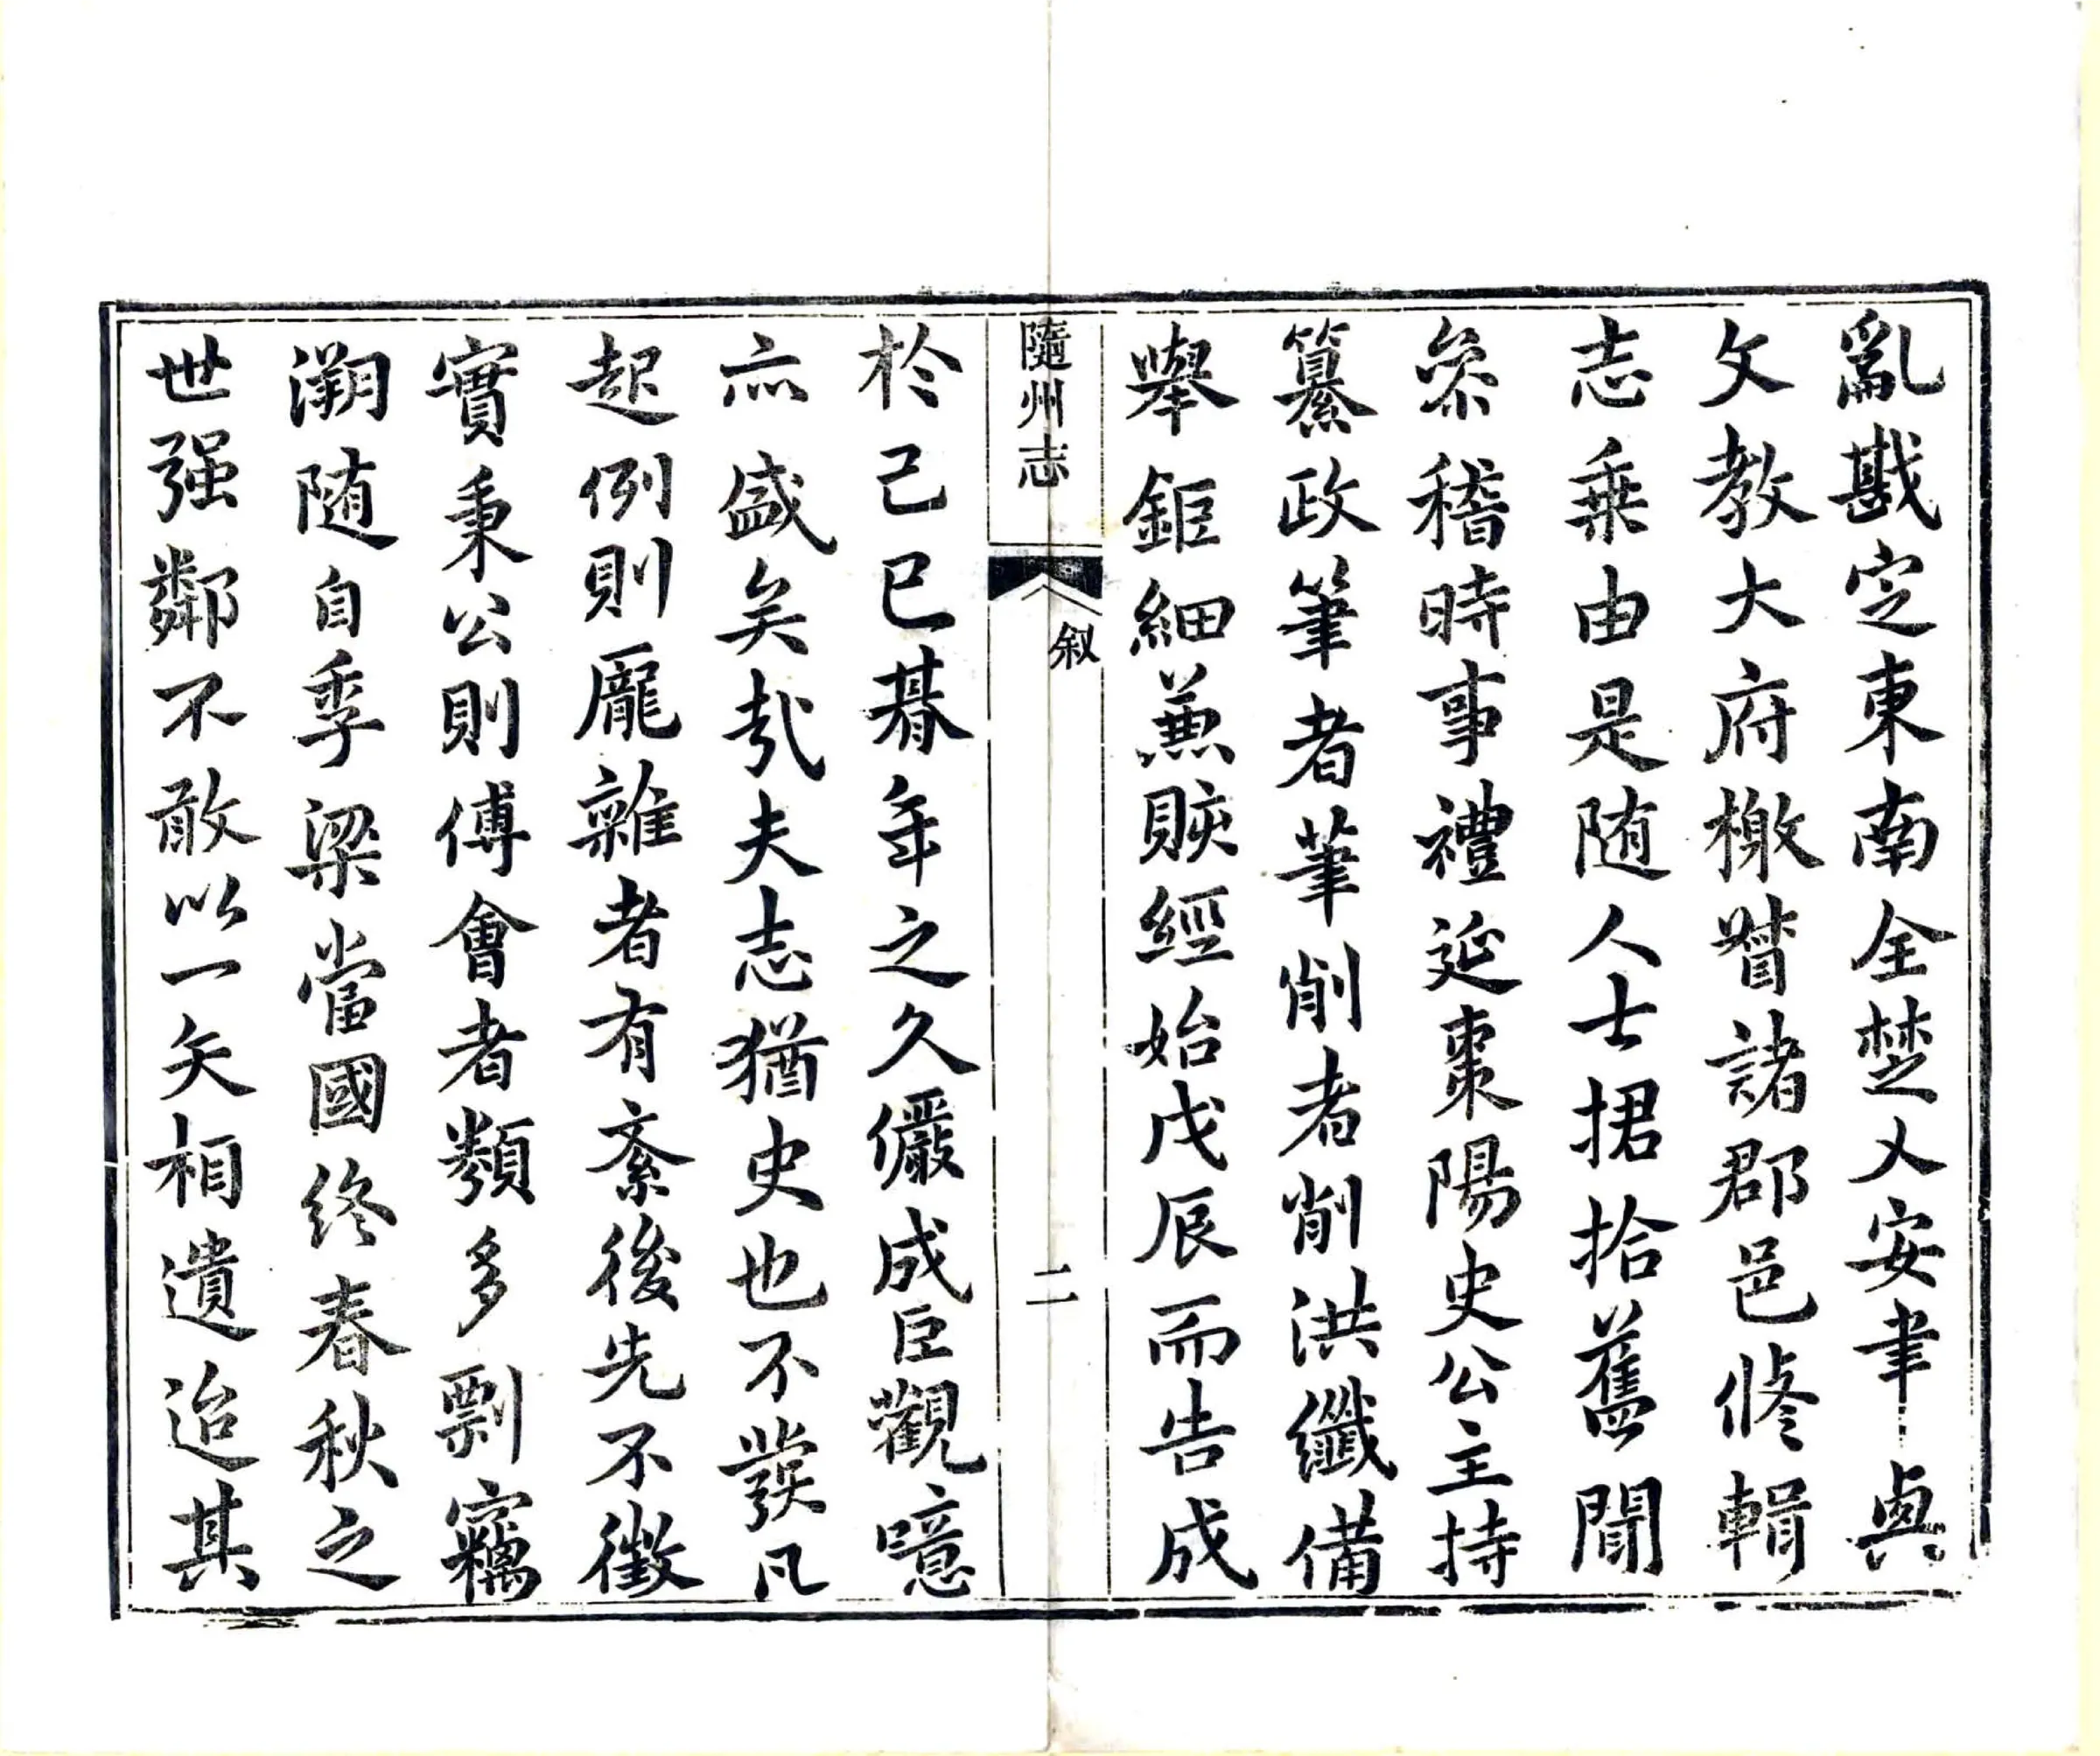 亂戡定東南全楚乂安聿興
文教大府檄督諸郡邑修輯
志乘由是随人士捃拾舊聞
叅稽時事禮延棗陽史公主持
纂政筆者筆削者削洪纖備
舉鉅細兼賅經始戊辰而告成
隨州志
叙
二
於己巳朞年之久儼成臣觀噫
亦盛矣哉夫志猶史也不發凡
起例則龎雜者有紊後先不徵
實秉公則傅會者類多剽竊
溯随自季梁當國終春秋之
世强鄰不敢以一矢相遺迨其